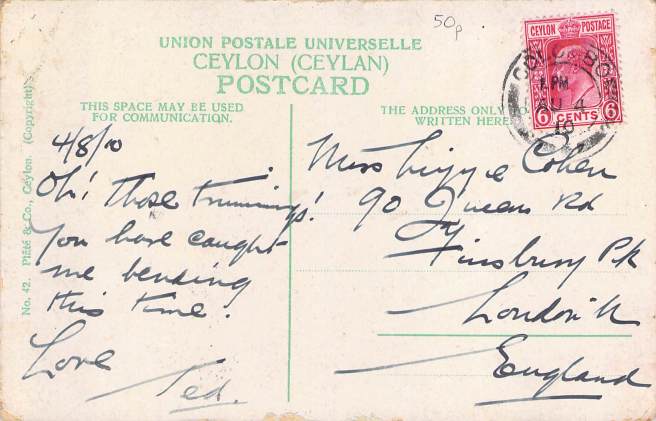 50p
UNION POSTALE UNIVERSELLE
CEYLON (CEYLAN)
POSTCARD
THIS SPACE MAY BE USED
FOR COMMUNICATION.
THE ADDRESS ONLY
WRITTEN HERE
CEYLON POSTAGE
6 CENTS 6
COLOMBO
1 PM
AU 4
10
No. 42. Plâté & Co., Ceylon. (Copyright)
4/8/10
Oh! Those trimmings!
You have caught
me bending
this time!
Love
Ted.
Miss Lizzie Cohen
90 Queens Rd
Finsbury Pk
London N
England